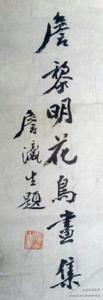 詹黎明花鳥畫集
詹鴻生題